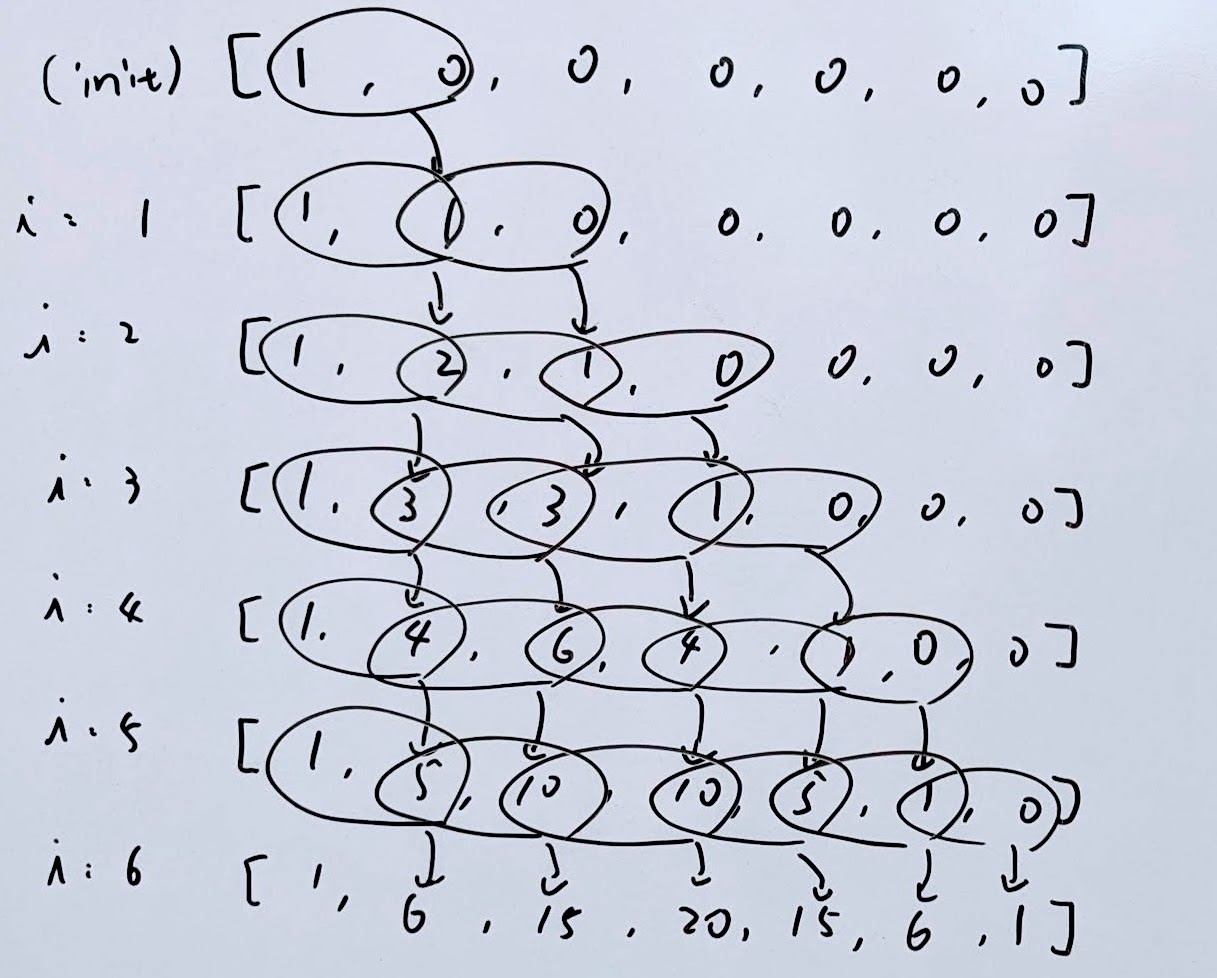 (init) [1, 0, 0, 0, 0, 0, 0]
i: 1 [1, 1, 0, 0, 0, 0, 0]
i: 2 [1, 2, 1, 0 0, 0, 0]
i: 3 [1, 3, 3, 1, 0, 0, 0]
i: 4 [1, 4, 6, 4, 1, 0, 0]
i: 5 [1, 5, 10, 10, 5, 1, 0]
i: 6 [1, 6, 15, 20, 15, 6, 1]